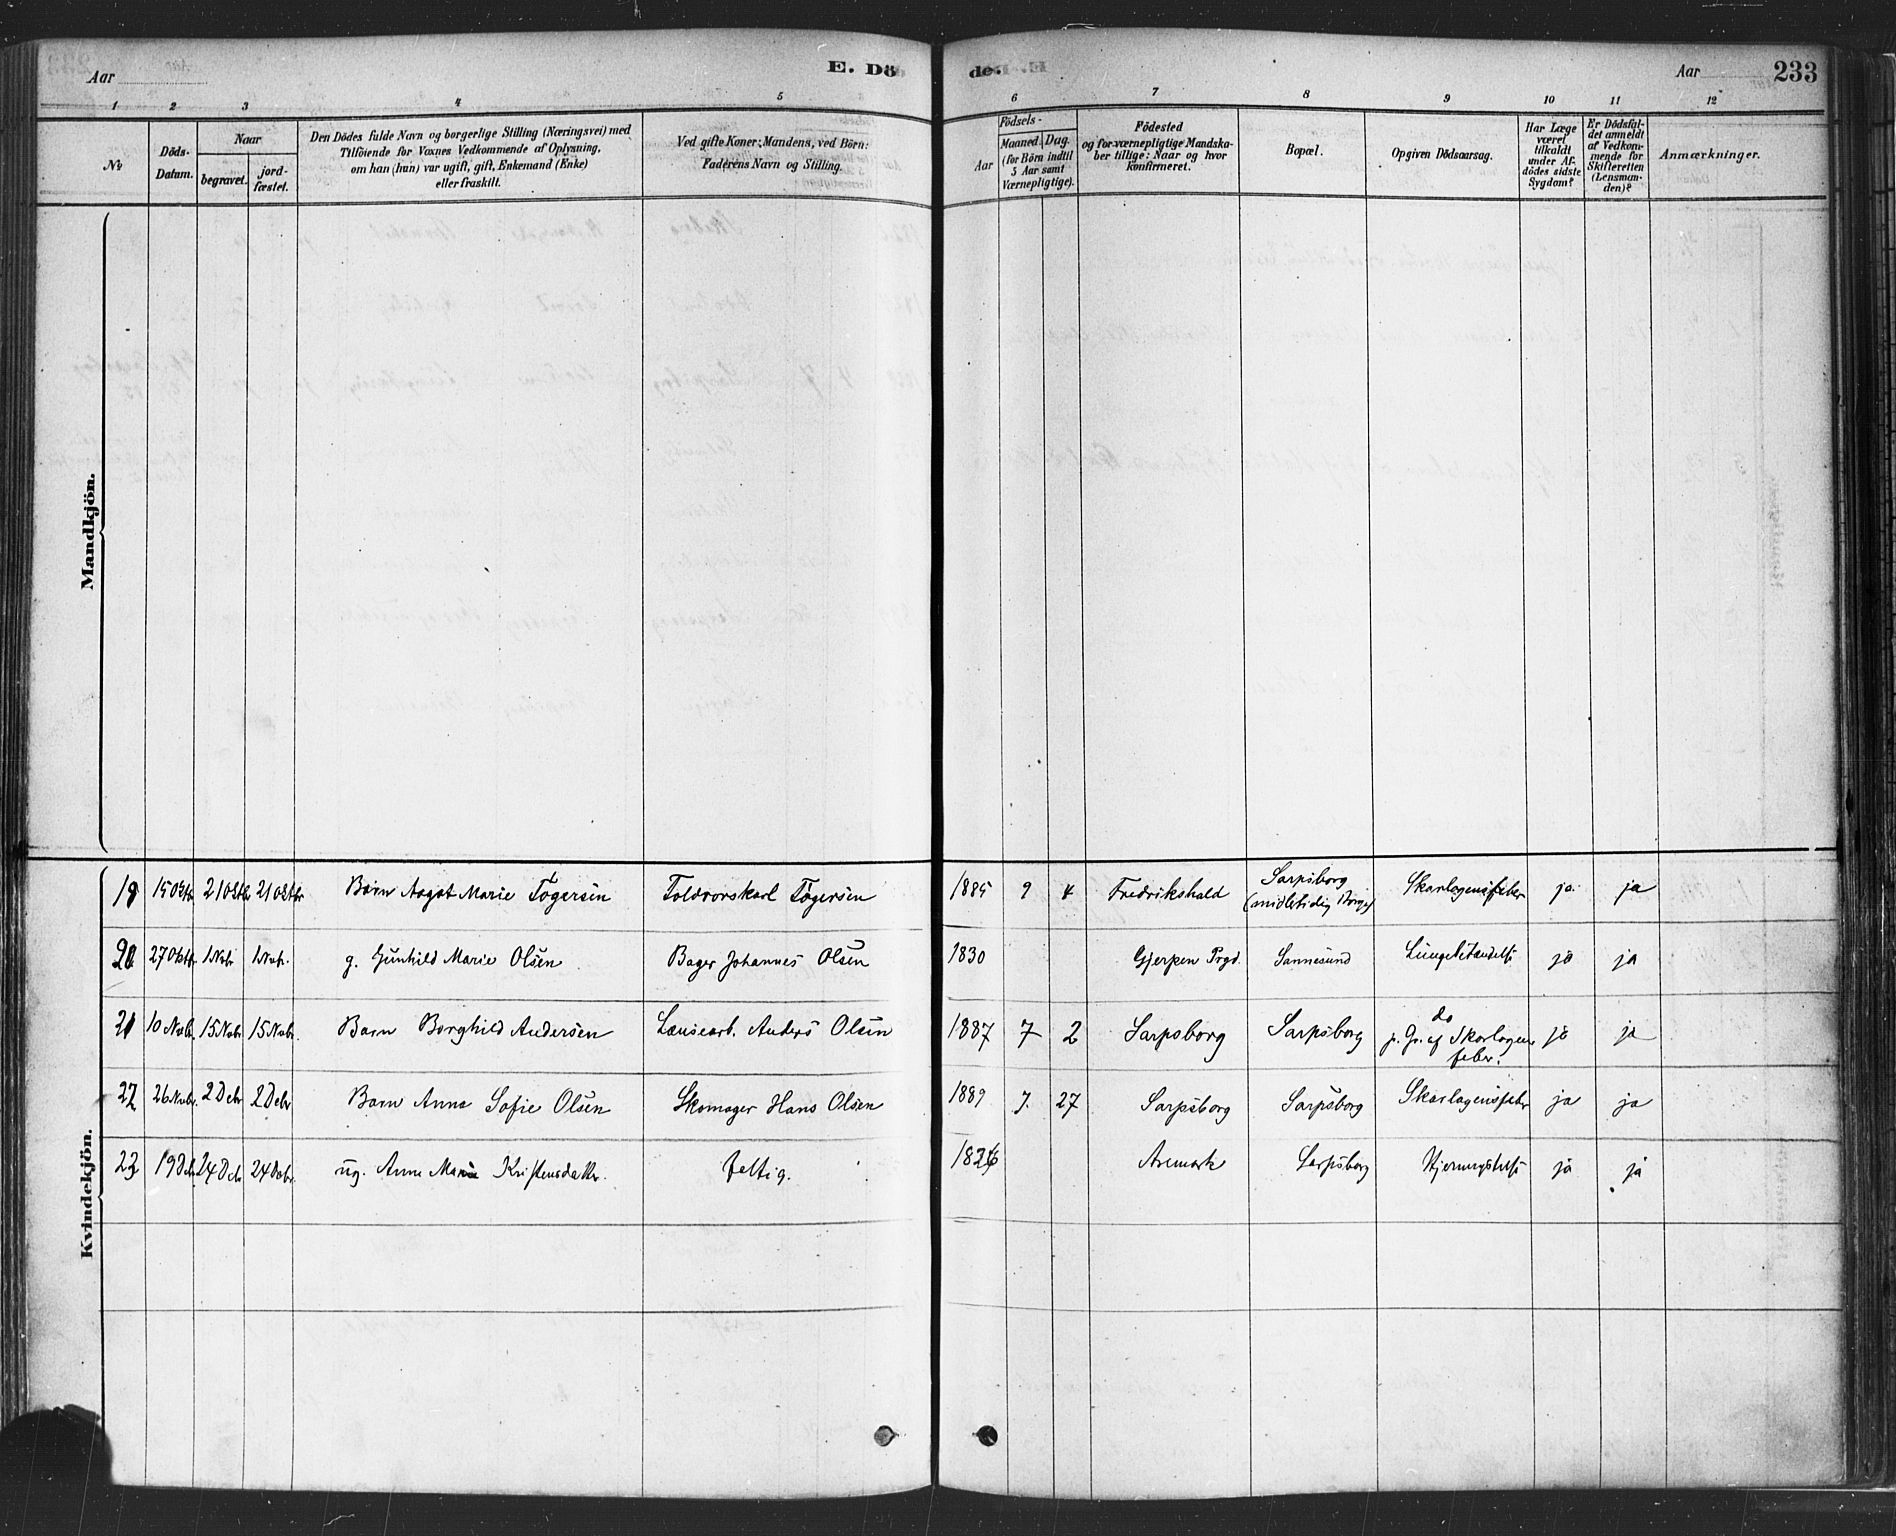 Aar
E. Dö
de.
Aar
233
1 2 3 4 5 6 7 8 9 10 11 12
No
Döds-
Datum.
Naar
begravet.
jord-
fæstet.
Den Dödes fulde Navn og borgerlige Stilling (Næringsvei) med
Tilföiende for Voxnes Vedkommende af Oplysning,
om han (hun) var ugift, gift, Enkemand (Enke)
eller fraskilt.
Ved gifte Koner: Mandens, ved Börn:
Faderens Navn og Stilling.
Födsels-
Aar
Maaned. Dag.
(for Börn indtil
5 Aar samt
Værnepligtige).
Födested
og for værnepligtige Mandska-
ber tillige: Naar og hvor
konfirmeret.
Bopæl.
Opgiven Dödsaarsag.
Har Læge
været
tilkaldt
under Af-
dödes sidste
Sygdom?
Er Dödsfal-
det anmeldt
af Vedkom-
mende for
Skifteretten
(Lensman-
den)?
Anmærkninger.
Mandkjön.
Kvindekjön.
15 Oktr 21 Oktr 21 Oktbr Barn Aagot Marie Tögersen Toldrorskarl Tögersen 1885 9 4 Fredrikshald Sarpsborg (midletidig Borge) Skarlagensfeber ja ja
27 Oktb. 1 Nobr 1 Nob. g. Gunhild Marie Olsen Bager Johannes Olsen 1830 Gjerpen Prgd. Sannesund Lungebetændelse ja ja
21 10 Nobr. 15 Nobr. 15 Nobr. Barn Borghild Andersen Lænsearb. Anders Olsen 1887 7 2 Sarpsborg Sarpsborg do p. Gr. af Skarlagens feber. ja ja
22 26 Nobr. 2 Debr 2 Debr Barn Anna Sofie Olsen Skomager Hans Olsen 1889 7. 27 Sarpsborg Sarpsborg Skarlagensfeber ja ja
23 19 Deb. 24 Deb 24 Debr. ug. Anne Marie Kristensdatter. fattig. Aremark Sarpsborg ja ja